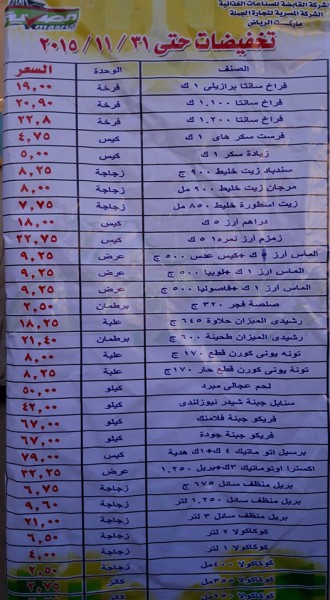 الشركة القابضة للصناعات الغذائية
الشركة المصرية لتجارة الجملة
ماركت الرياض
تخفيضات حتى ٣١ / ١١ / ٢٠١٥
الصنف الوحدة السعر
فراخ سانتا برازيلى ١ ك فرخة ١٩,٠٠
فراخ سانتا ١,١٠٠ ك فرخة ٢٠,٩٠
فراخ سانتا ١,٢٠٠ ك فرخة ٢٢,٨
فرست سكر هاى ١ ك كيس ٤,٧٥
زيادة سكر ١ ك كيس ٥,٠٠
سندباد زيت خليط ٩٠٠ ج زجاجة ٨,٢٥
مرجان زيت خليط ٩٠٠ مل زجاجة ٨,٠٠
زيت اسطورة خليط ٨٥٠ مل زجاجة ٧,٧٥
دراهم ارز ٥ ك كيس ١٨,٠٠
زمزم ارز نمرة١ ٥ ك كيس ٢٢,٧٥
الماس ارز ك +كيس عدس ٥٠٠ ج عرض ٩,٢٥
الماس ارز ١ ك +لوبيا ٥٠٠ ج عرض ٩,٢٥
الماس ارز ١ ك +فاصوليا ٥٠٠ ج عرض ٩,٢٥
صلصة فجر ٣٢٠ ج برطمان ٢,٥٠
رشيدى الميزان حلاوة ٦٤٥ ج علبة ١٨,٢٥
رشيدى الميزان طحينة ٦٠٠ ج برطمان ٢١,٤٠
تونة يونى كورن قطع ١٧٠ ج علبة ٨,٠٠
تونة يونى كورن قطع حار ١٧٠ج علبة ٨,٢٥
لحم عجالى مبرد كيلو ٥٠,٠٠
سنابل جبنة شيدر نيوزلندى كيلو ٤٢,٠٠
فريكو جبنة فلامنك كيلو ٦٧,٠٠
فريكو جبنة جودة كيلو ٦٧,٠٠
برسيل اتو ماتيك ٤ك+١ك هدية كيس ٧٩,٠٠
اكسترا اوتوماتيك ٣ك+بريل ١,٢٥٠ عرض ٣٢,٢٥
بريل منظف سائل ٦٧٥ ج زجاجة ٦,٧٥
بريل منظف سائل ١,٢٥٠ لتر زجاجة ٩,٦٠
بريل منظف سائل ٣ لتر زجاجة ٢١,٠٠
كوكاكولا ٢ لتر زجاجة ٦,٥٠
كوكاكولا ١ لتر زجاجة ٤,٠٠
كوكاكولا ٤٠٠مل زجاجة ٢,٥٠
كوكاكولا ٣٥٥مل كانز ٢,٧٥